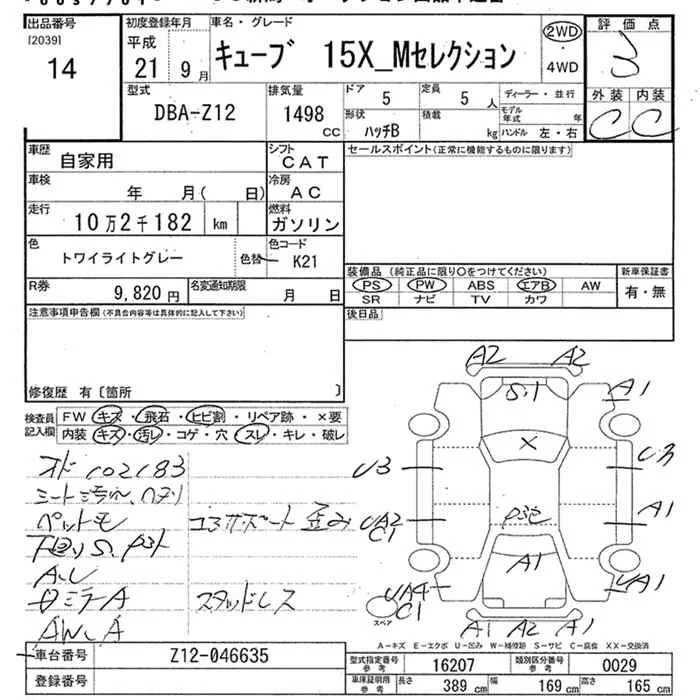 出品番号
[2039]
14
初度登録年月
平成
21 9月
車名・グレード
キューブ 15X_Mセレクション
2WD
・
4WD
評価点
3
外装 内装
C C
型式
DBA-Z12
排気量
1498
CC
ドア 5
定員 5 人
形状 ハッチB
積載 kg
ディーラー・並行
モデル年式 年
ハンドル 左・右
車歴
自家用
シフト
CAT
車検
年 月( 日)
冷房
AC
走行
10万2千182 km
燃料
ガソリン
色
トワイライトグレー
色替
色コード
K21
R券
9,820 円
名変通知期限
月 日
セールスポイント(正常に機能するものに限ります)
装備品 (純正品に限り○をつけてください)
PS PW ABS エアB AW
SR ナビ TV カワ
新車保証書
有・無
後日品
注意事項申告欄(不具合内容等は具体的に記入して下さい)
修復歴 有〔箇所 〕
検査員
記入欄
FW キズ・飛石・ヒビ割・リペア跡・×要
内装 キズ・汚レ・コゲ・穴・スレ・キレ・破レ
オド102183
シート汚れ、ヘタリ
ペットモ
コアサポート 歪み
A、U
スタッドレス
AW、A
A2 A2
S.1
A1
X
U3
U3
UA2
C1
A1
A1
UA4
C1
UA1
スペア
A1 A2 A1
A-キズ E-エクボ U-凹み W-補修跡 S-サビ C-腐食 XX-交換済
車台番号
Z12-046635
登録番号
型式指定番号
参考
16207
類別区分番号
参考
0029
車庫証明用
参考
長さ 389 cm
幅 169 cm
高さ 165 cm